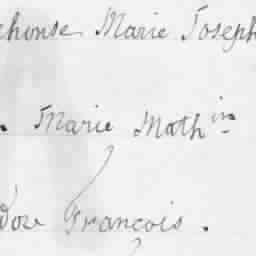 phonse Marie Joseph
. Marie Math in
dore François .